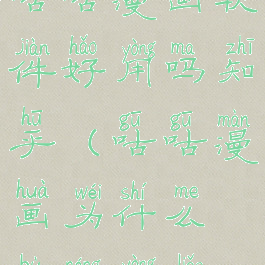 咕咕漫画软
jiàn hǎo yòng ma zhī
件好用吗,知
hū gū gū màn
乎(咕咕漫
huà wéi shí me
画为什么